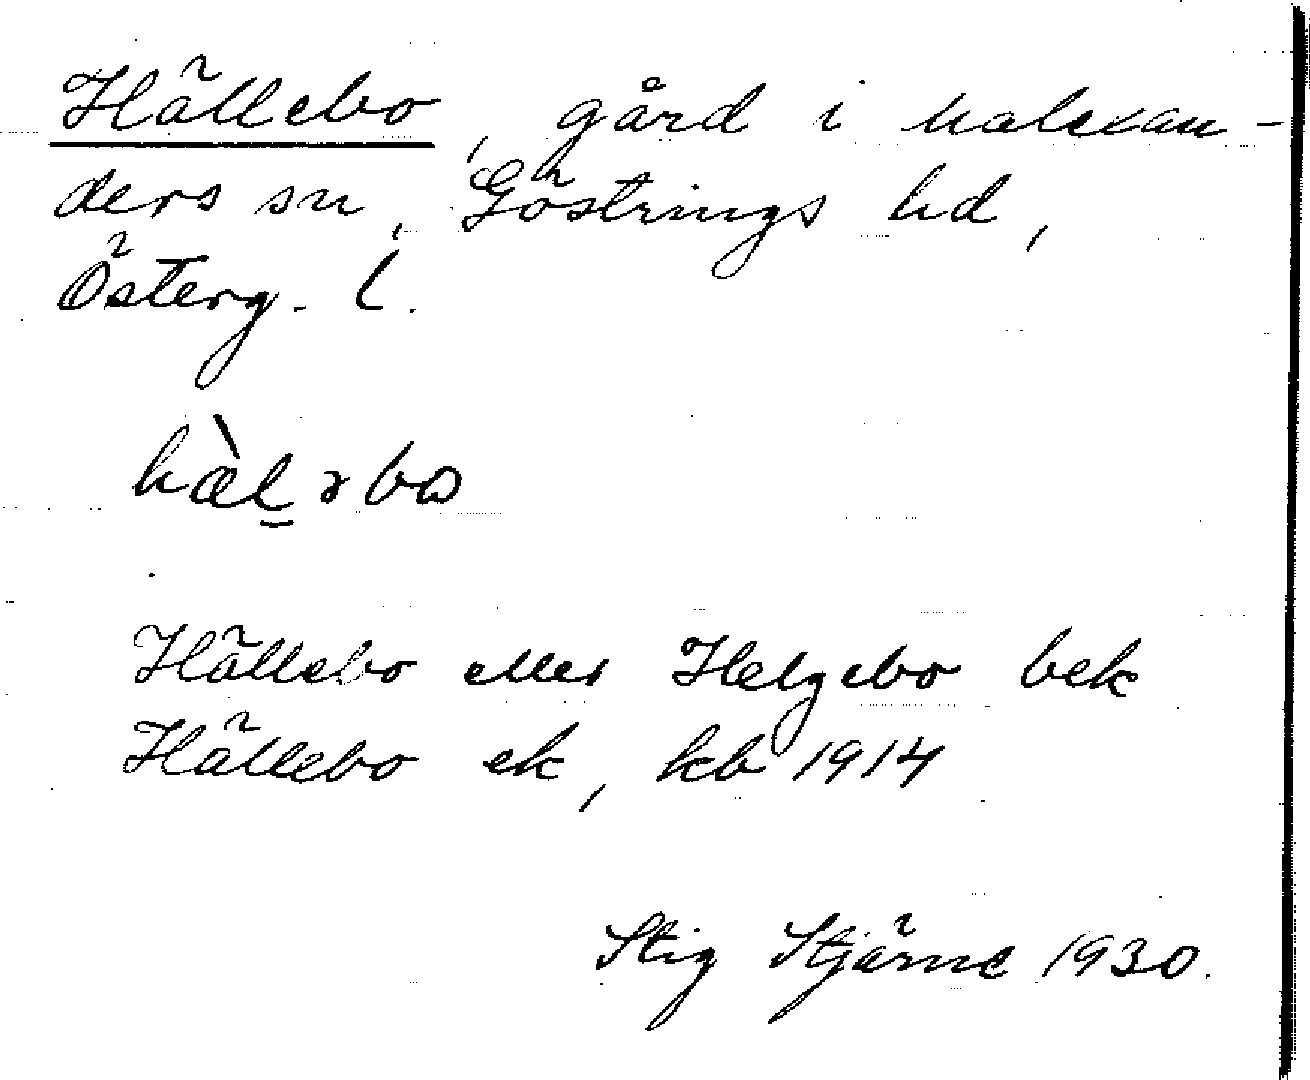 Hällebo, gård i Malexan-
ders sn, Göstrings hd,
Österg. l.
hæ̀l̠ əbω
Hällebo eller Helgebo bek
Hällebo ek, kb 1914
Stig Stjärne 1930.